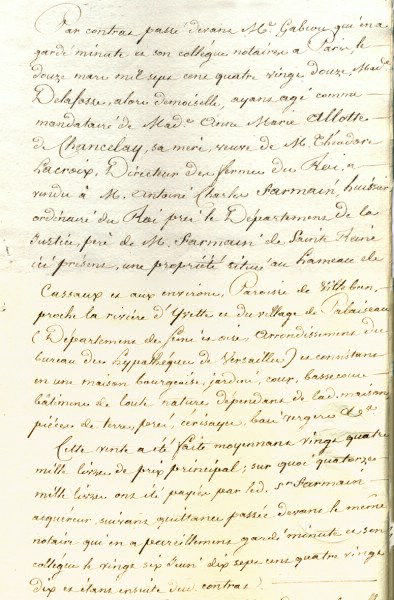 Par contrat passé devant Me. Gabiou qui en a
gardé minute et son collègue notaires à Paris, le
douze mars mil sept cent quatre vingt douze, Made.
Delafosse, alors demoiselle, ayant agé comme
mandataire de Made. Anne Marie Allotte
de Chancelay, sa mère, veuve de M. Théodore
Lacroix, Directeur des fermes du Roi, a
vendu à M. Antoine Charles Farmain huissier
ordinaire du Roi près le Département de la
Justice, père de M. Farmain de Sainte Reine
ici présent, une propriété située au hameau de
Cassaux et aux environs, Paroisse de Villebon,
proche la rivière d'Yvette et du village de Palaiseau
(Département de Seine et oise, Arrondissement du
bureau des hypothèques de Versailles) et consistant
en une maison bourgeoise, jardin, cour, bassecour
bâtimens de toute nature dépendans de lad. maison
pièces de terre, prés, cerisaye, vergers &a.
Cette vente a été faite moyennant vingt quatre
mille livres de prix principal; sur quoi quatorze
mille livres ont été payées par led. Sr. Farmain
acquéreur suivant quittance passée devant le même
notaire qui en a pareillement gardé minute et son
collègue le vingt six dix sept cent quatre vingt
dix et étant ensuite dud. contrat.